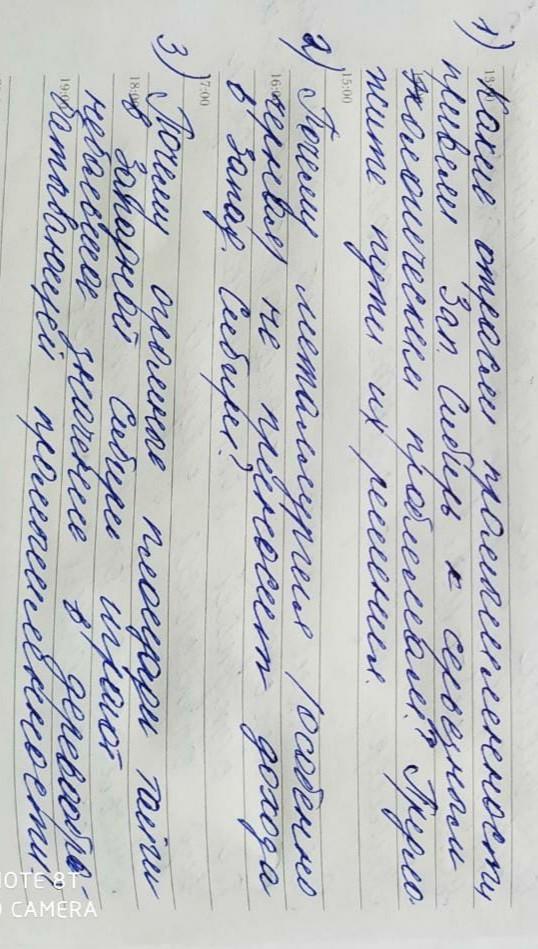 1) Какие отрасли промышленности
привели Зап. Сибирь к серьезным
экологическим проблемам? Предло
жите пути их решения.
2) Почему металлургия (особенно
черная) не приносит дохода
в Запад. Сибири?
3) Почему огромные площади тайги
в Западной Сибири играют
небольшое значение в деревообра-
батывающей промышленности.
13
15:00
16:0
7:00
18:0
19:0
NOTE 8T
CAMERA